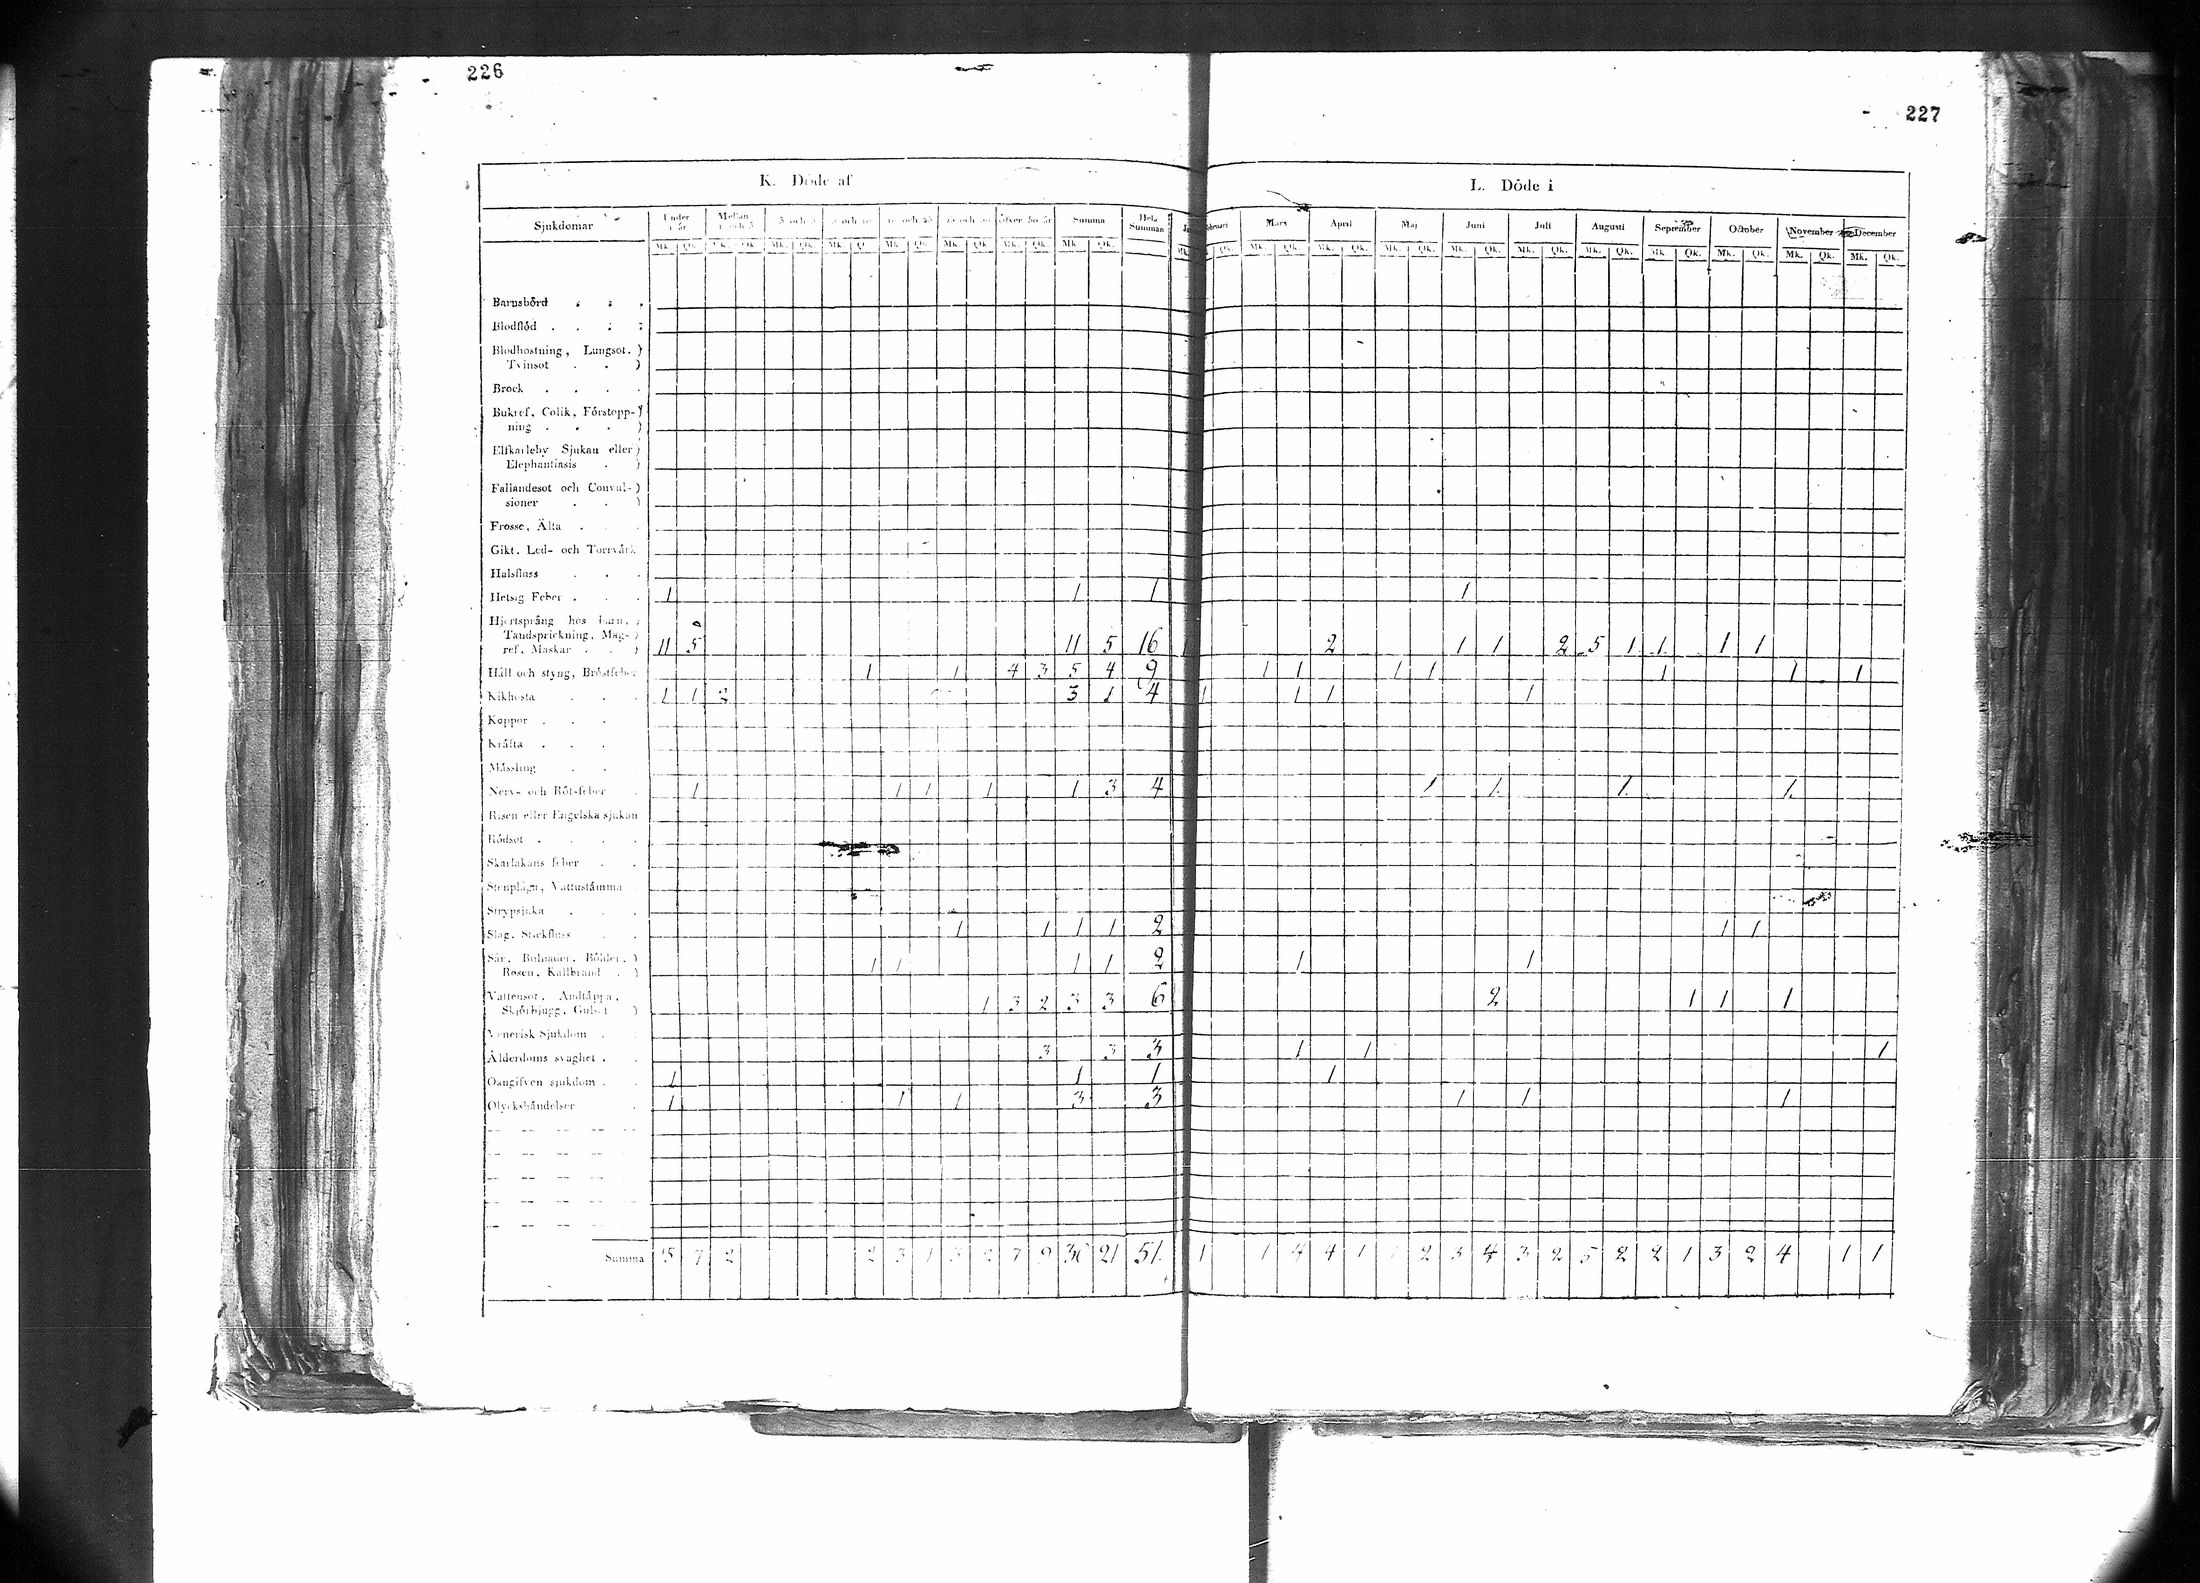 226
227
K. Döde af
L. Döde i
Sjukdomar Under 1 år Mellan 1 och 3 3 och 5 5 och 10 10 och 25 25 och 50 öfver 50 år Summa Hela Summan
Februari Mars April Maj Juni Juli Augusti September October November December
Mk. Qk. Mk. Qk. Mk. Qk. Mk. Q Mk. Qk. Mk. Qk. Mk. Qk. Mk. Qk.
Mk. Qk. Mk. Qk. Mk. Qk. Mk. Qk. Mk. Qk. Mk. Qk. Mk. Qk. Mk. Qk. Mk. Qk. Mk. Qk. Mk. Qk.
Barnsbörd
Blodflöd
Blodhostning, Lungsot,
Tvinsot
Brock
Bukref, Colik, Förstopp-
ning
Elfkarleby Sjukan eller
Elephantiasis
Fallandesot och Convul-
sioner
Frosse, Älta
Gikt, Led- och Torrvärk
Halsfluss
Hetsig Feber 1 1 1 1
Hjertsprång hos barn,
Tandsprickning, Mag-
ref, Maskar 11 5 11 5 16 1 2 1 1 2 5 1 1 1 1
Håll och styng, Bröstfeber 1 1 4 3 5 4 9 1 1 1 1 1 1 1
Kikhosta 1 1 2 3 1 4 1 1 1 1
Koppor
Kräfta
Mässling
Nerv- och Röt-feber 1 1 1 1 1 3 4 1 1. 1. 1.
Risen eller Engelska sjukan
Rödsot
Skarlakans feber
Stenplågn, Vattustämma
Strypsjuka
Slag, Stickfluss 1 1 1 1 2 1 1
Sår, Bulnader, Bölder,
Rosen, Kallbrand 1 1 1 1 2 1 1
Vattensot, Andtäppa,
Skjörbjugg, Gulsot 1 3 2 3 3 6 2 1 1 1
Venerisk Sjukdom
Ålderdoms svaghet 3 3 3 1 1 1
Oangifven sjukdom 1 1 1 1
Olyckshändelser 1 1 1 3 3 1 1 1
Summa 15 7 2 2 3 1 3 2 7 9 30 21 51. 1 1 4 4 1 1 2 3 4 3 2 5 2 2 1 3 2 4 1 1